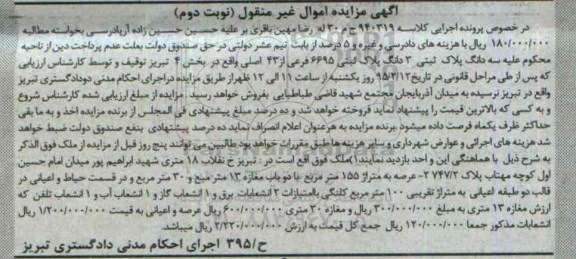 آگهی مزایده اموال غیر منقول (نوبت دوم)
در خصوص پرونده اجرایی کلاسه ۹۴۰۳۱۹ ج م ۳۰ له رضا مهین باقری بر علیه حسین حسین زاده آریادرسی بخواسته مطالبه
۱۸۰/۰۰۰/۰۰۰ ریال با هزینه های دادرسی و غیره و ۵ درصد از بابت نیم عشر دولتی در حق صندوق دولت بعلت عدم پرداخت دین از ناحیه
محکوم علیه سه دانگ پلاک ثبتی ۳ دانگ پلاک ثبتی ۶۶۹۵ فرعی از ۴۳ اصلی واقع در بخش ۴ تبریز توقیف و توسط کارشناس ارزیابی
که پس از طی مراحل قانونی در تاریخ ۹۵/۴/۱۲ روز یکشنبه از ساعت ۱۱ الی ۱۲ ظهر از طریق مزایده در اجرای احکام مدنی دادگستری تبریز
واقع در تبریز نرسیده به میدان آذربایجان مجتمع شهید قاضی طباطبایی بفروش خواهد رسید . مزایده از مبلغ ارزیابی شده کارشناس شروع
و به کسی که بالاترین قیمت را پیشنهاد نماید فروخته خواهد شد و ده درصد مبلغ پیشنهادی فی المجلس از برنده مزایده اخذ و به ما بقی
حداکثر ظرف یکماه فرصت داده میشود برنده مزایده به هر عنوان اعلام انصراف نماید ده درصد پیشنهادی بنفع صندوق دولت ضبط خواهد
شد هزینه های اجرائی و عوارض شهرداری و سایر هزینه ها طبق مقررات خواهد بود طالبین می توانند پنج روز قبل از مزایده از ملک فوق الذکر
به شرح ذیل با هماهنگی این واحد بازدید نمایند) ملک فوق واقع است در : تبریز خ نقلاب ۱۸ متری شهید ابراهیم پور میدان امام حسین
اول کوچه مهتاب پلاک ۷۴۷/۲ ۲- عرصه به متراژ ۱۵۵ متر مربع با دو باب مغازه ۱۳ متر مربع و ۳۰ متر مربع و در قسمت حیاط و اعیانی در
قالب دو طبقه اعیانی به متراژ تقریبی ۱۰۰ متر مربع کلنگی بامتیازات ۲ انشعابات برق و ۱ انشعاب گاز و ۱ انشعاب آب و ۱ انشعاب تلفن که
ارزش مغازه ۱۳ متری به مبلغ ۳۰۰/۰۰۰/۰۰۰ ریال و مغازه ۳۰ متری ۶۰۰/۰۰۰/۰۰۰ ریال عرصه و اعیانی به قیمت ۱/۲۰۰/۰۰۰/۰۰۰ ریال
انشعابات مذکور جمعا ۱۲۰/۰۰۰/۰۰۰ ریال جمع کل قیمت به ارزش ۲/۲۲۰/۰۰۰/۰۰۰ ریال میباشد.
ح/۳۹۵ اجرای احکام مدنی دادگستری تبریز